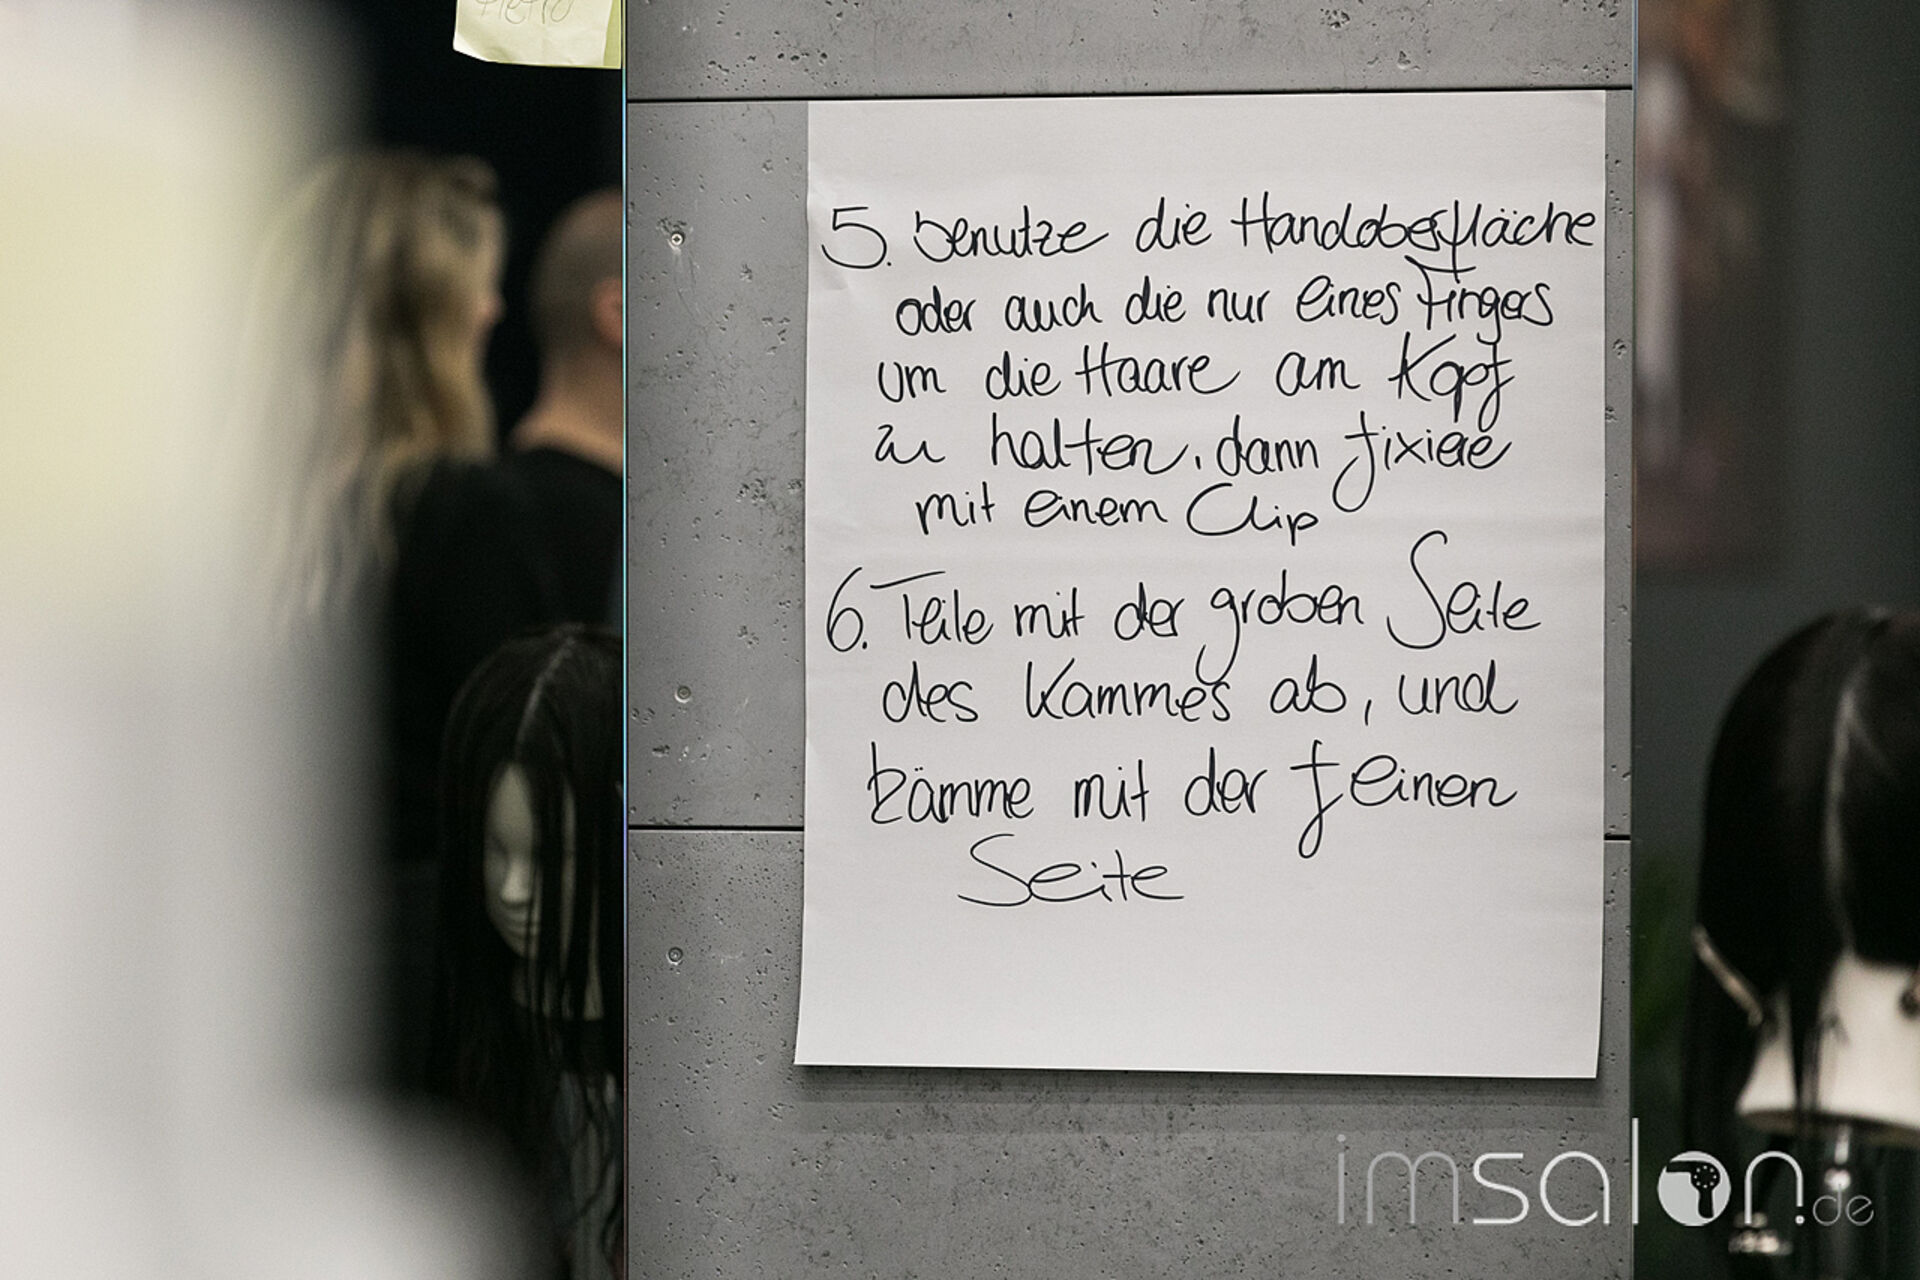 5. benutze die Handoberfläche
oder auch die nur eines Fingers
um die Haare am Kopf
zu halten, dann fixiere
mit einem Clip
6. Teile mit der groben Seite
des Kammes ab, und
kämme mit der feinen
Seite
imsalon.de